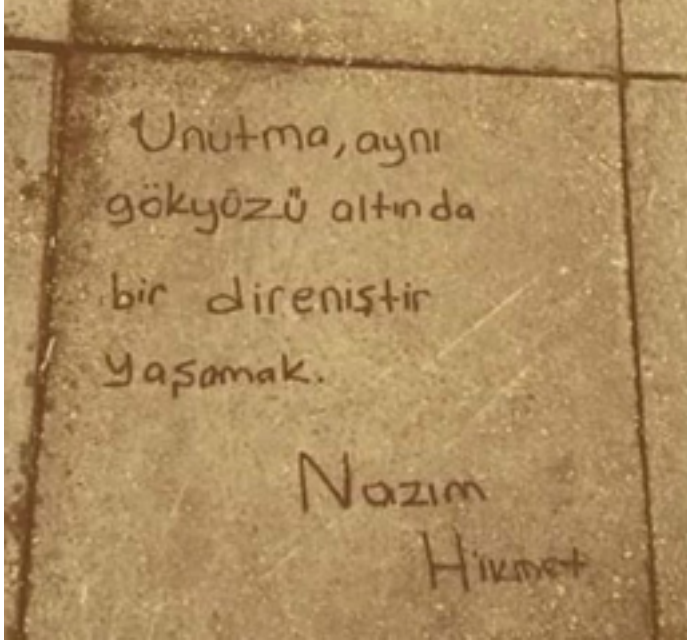 Unutma, aynı
gökyüzü altında
bir direniştir
yaşamak.
Nazım
Hikmet